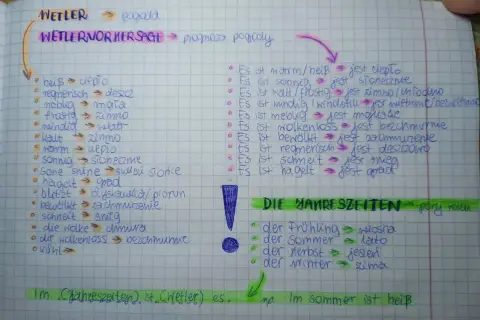 WETTER → pogoda
WETTERVORHERSAGE → prognoza pogody
heiß → ciepło
regnerisch → deszcz
neblig → mgła
frostig → zimno
windig → wiatr
kalt → zimno
warm → ciepło
sonnig → słonecznie
hagelt → grad
bewölkt → zachmurzenie
schneit → śnieg
die Wolke → chmura
der wolkenloss → bezchmurnie
kühl →
Es ist warm/heiß → jest ciepło
Es ist sonnig → jest słonecznie
Es ist kalt/frostig → jest zimno/chłodno
Es ist windig/windstill → jest wietrznie/bezwietrznie
Es ist neblig → jest mgliście
Es ist wolkenloss → jest bezchmurnie
Es ist bewölkt → jest zachmurzenie
Es ist regnerisch → jest deszczowo
Es ist schneit → jest śnieg
Es ist hagelt → jest grad
!
DIE JAHRESZEITEN - pory roku
der Frühling → wiosna
der Sommer → lato
der Herbst → jesień
der Winter → zima
Im (Jahreszeiten) ist (Wetter) es. np Im Sommer ist heiß